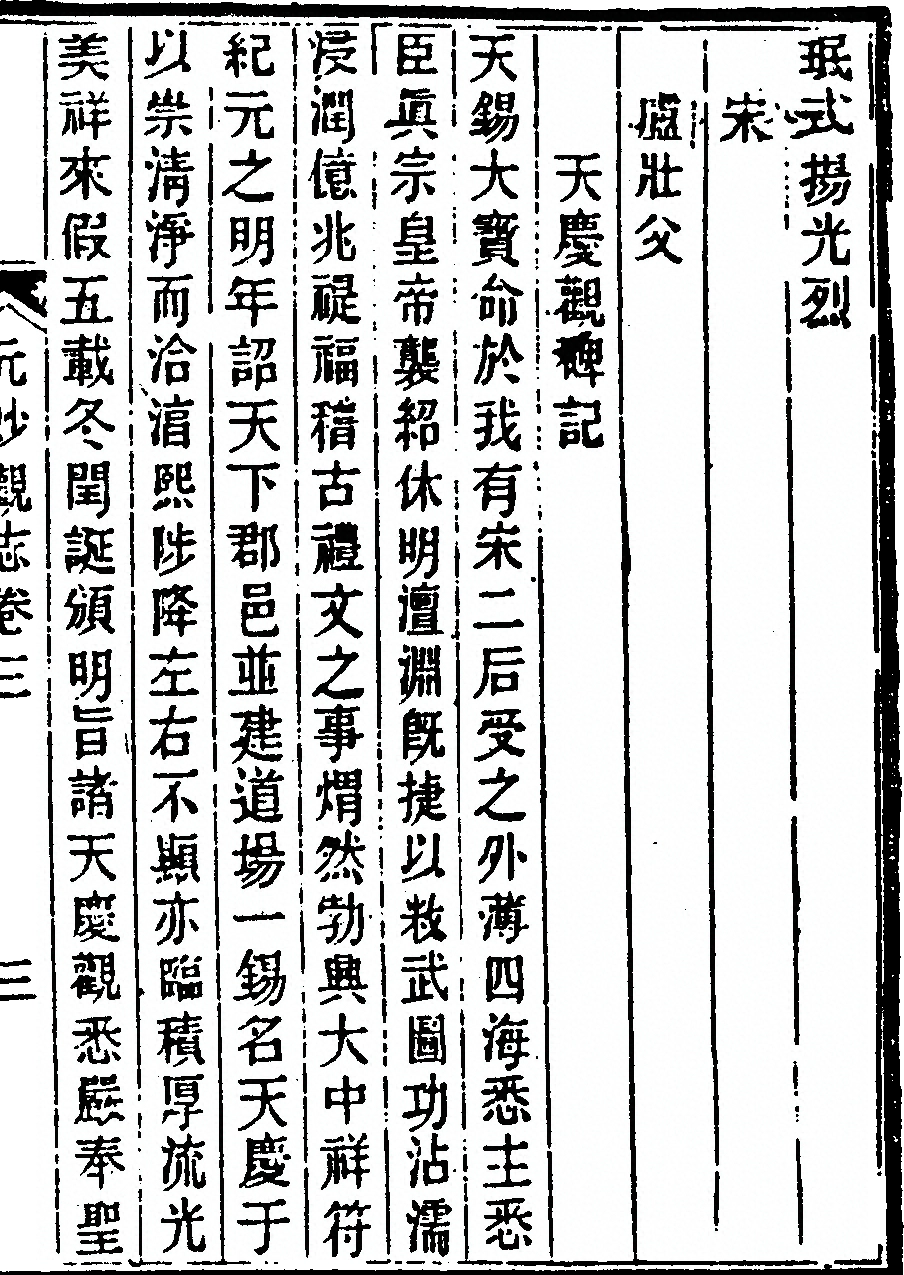 珉式揚光烈
宋
盧壯父
天慶觀碑記
天錫大寶命於我有宋二后受之外薄四海悉主悉
臣眞宗皇帝襲紹休明澶淵旣捷以敉武圖功沾濡
浸潤億兆禔福稽古禮文之事焆然勃興大中祥符
紀元之明年詔天下郡邑並建道場一錫名天慶于
以崇淸淨而洽淯熙陟降左右不顯亦臨積厚流光
美祥來假五載冬閏誕頒明旨諸天慶觀悉嚴奉聖
元妙觀志卷三
二